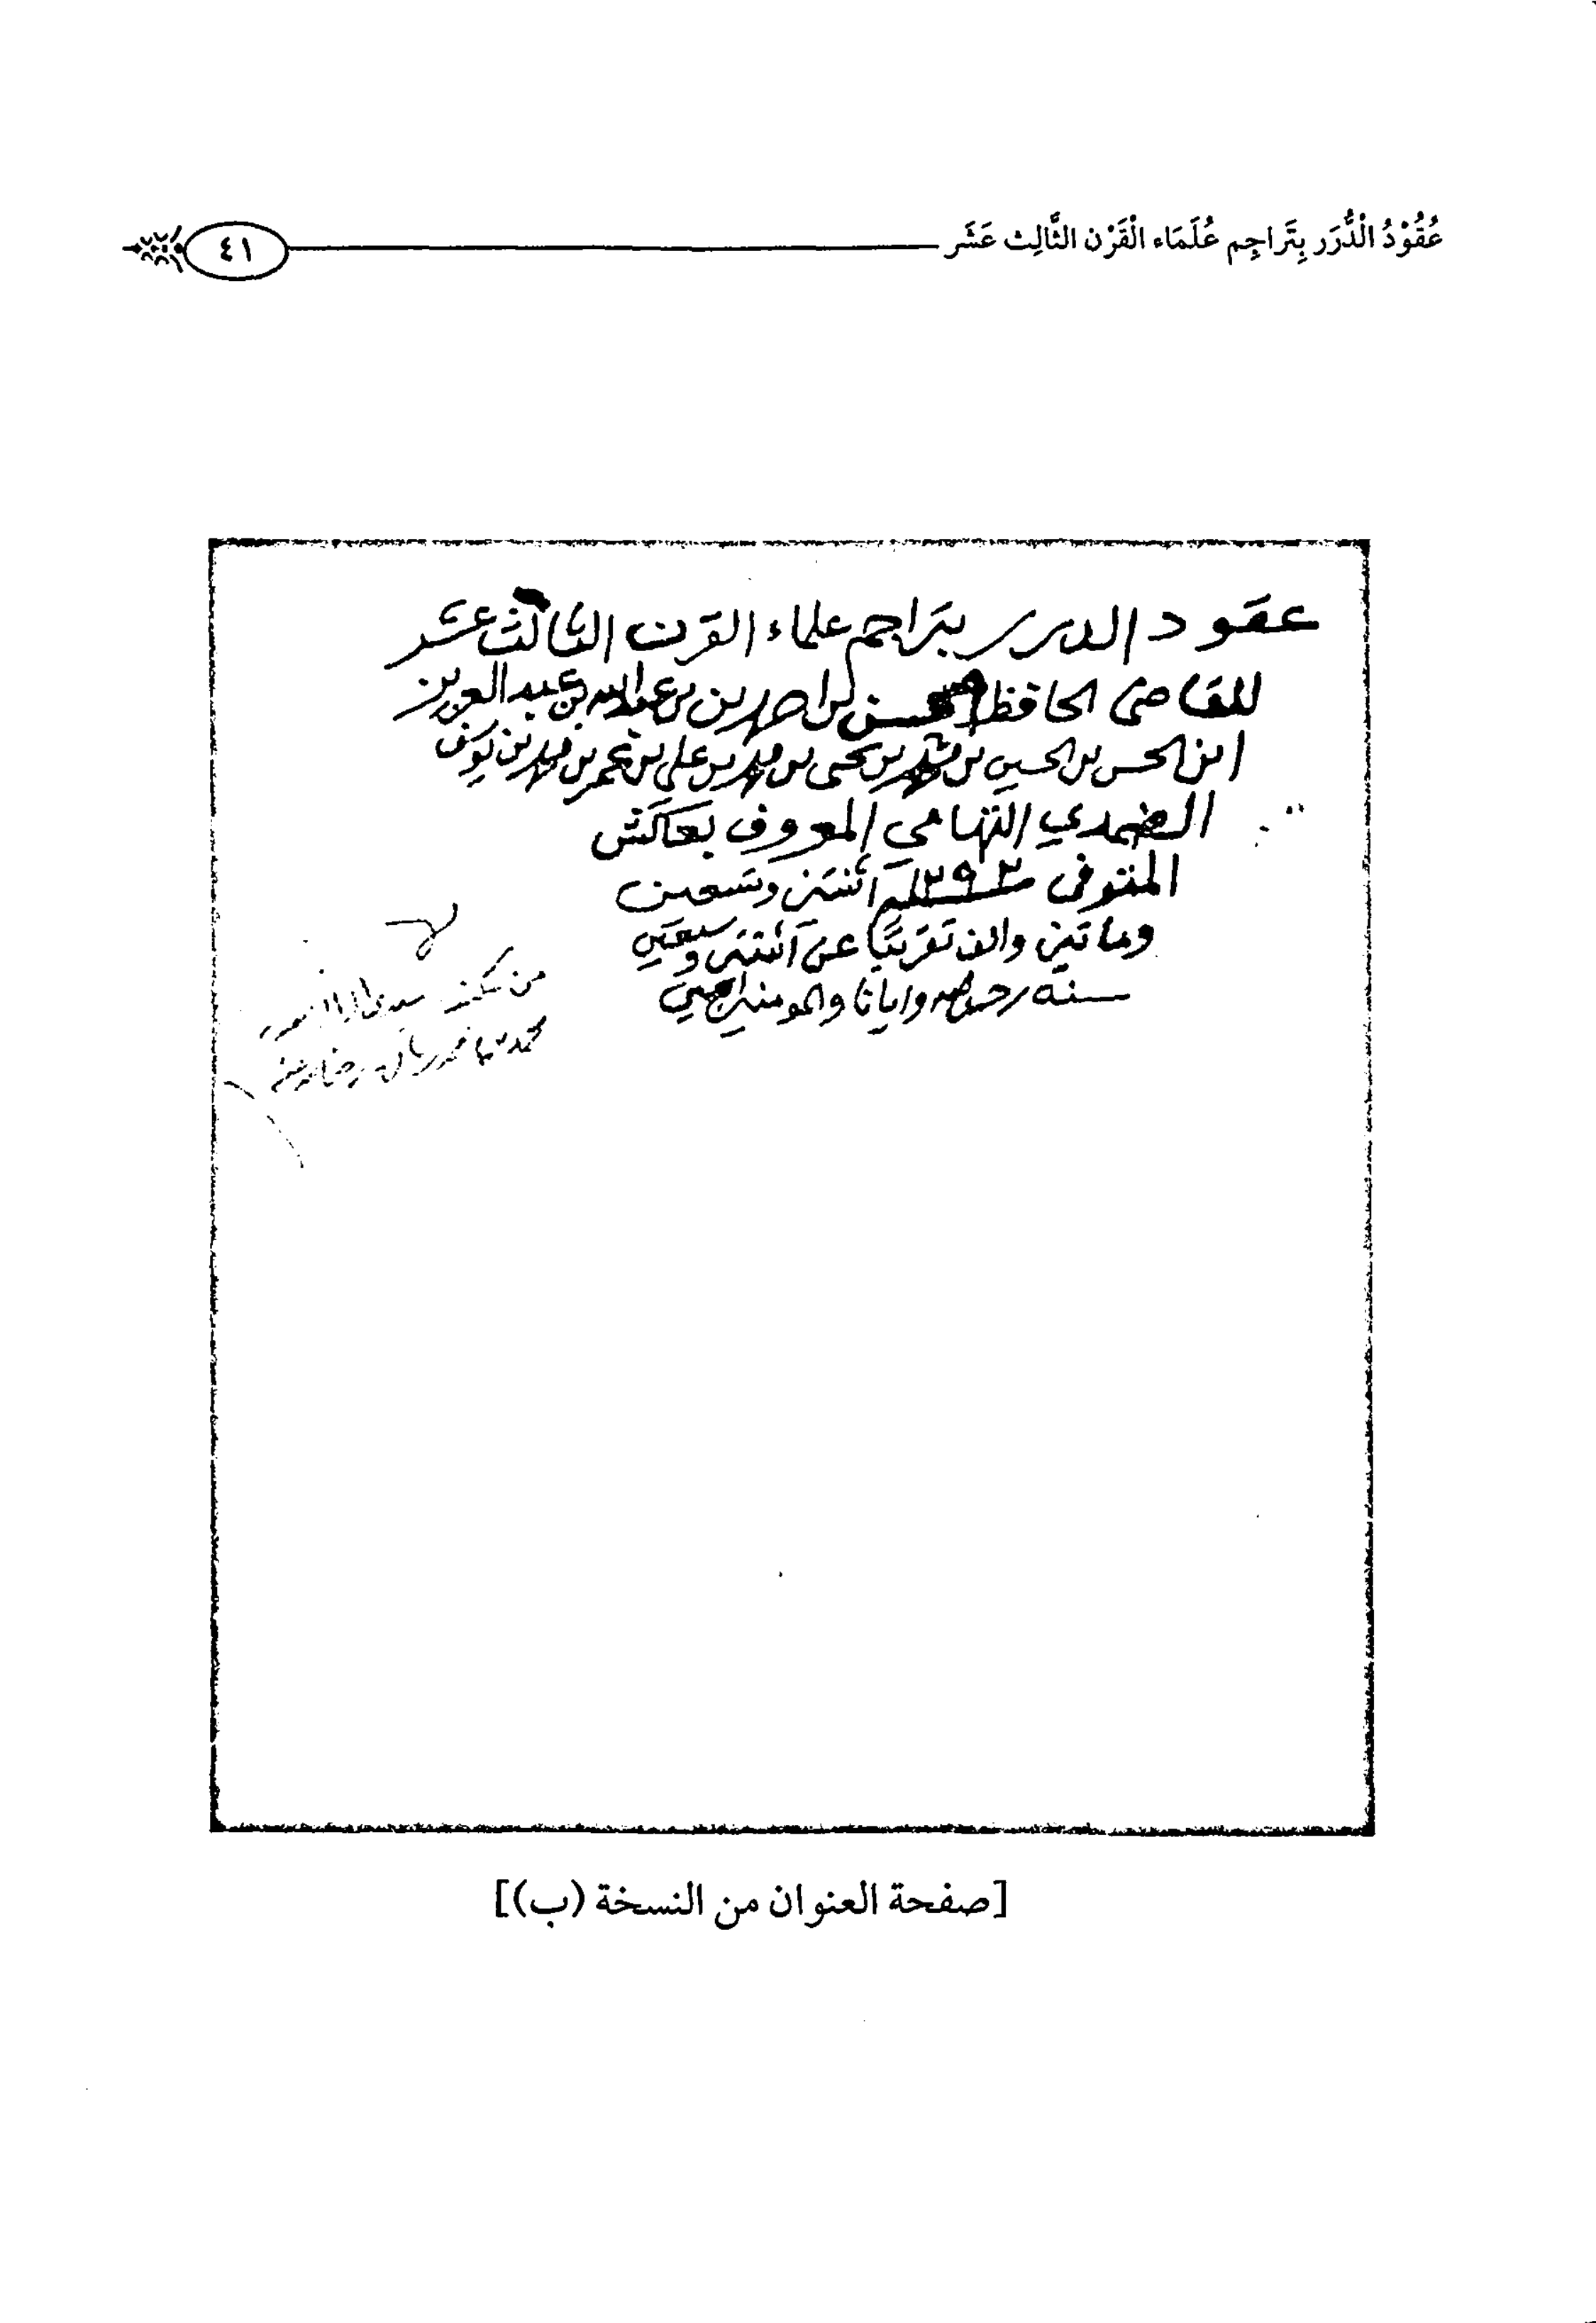 عُقُوْدُ الْدُّرَر بِتَرَاجِم عُلَمَاء الْقَرْن الثَّالِث عَشَر
٤١
عقود الدرر بتراجم علماء القرن الثالث عشر
للقاضى الحافظ حسن بن احمد بن عبدالله بن عبد العزيز
ابن الحسن بن الحسين بن محمد بن يحيى بن محمد بن على بن عمر بن محمد بن يوسف
الضمدي التهامي المعروف بعاكش
المتوفى ١٢٩٢ اثنتين وتسعين
وماتين والف تقريبًا عن اثنتين وسبعين
سنة رحمه الله وايانا والمومنين اجمعين
من
محمد
[صفحة العنوان من النسخة (ب)]